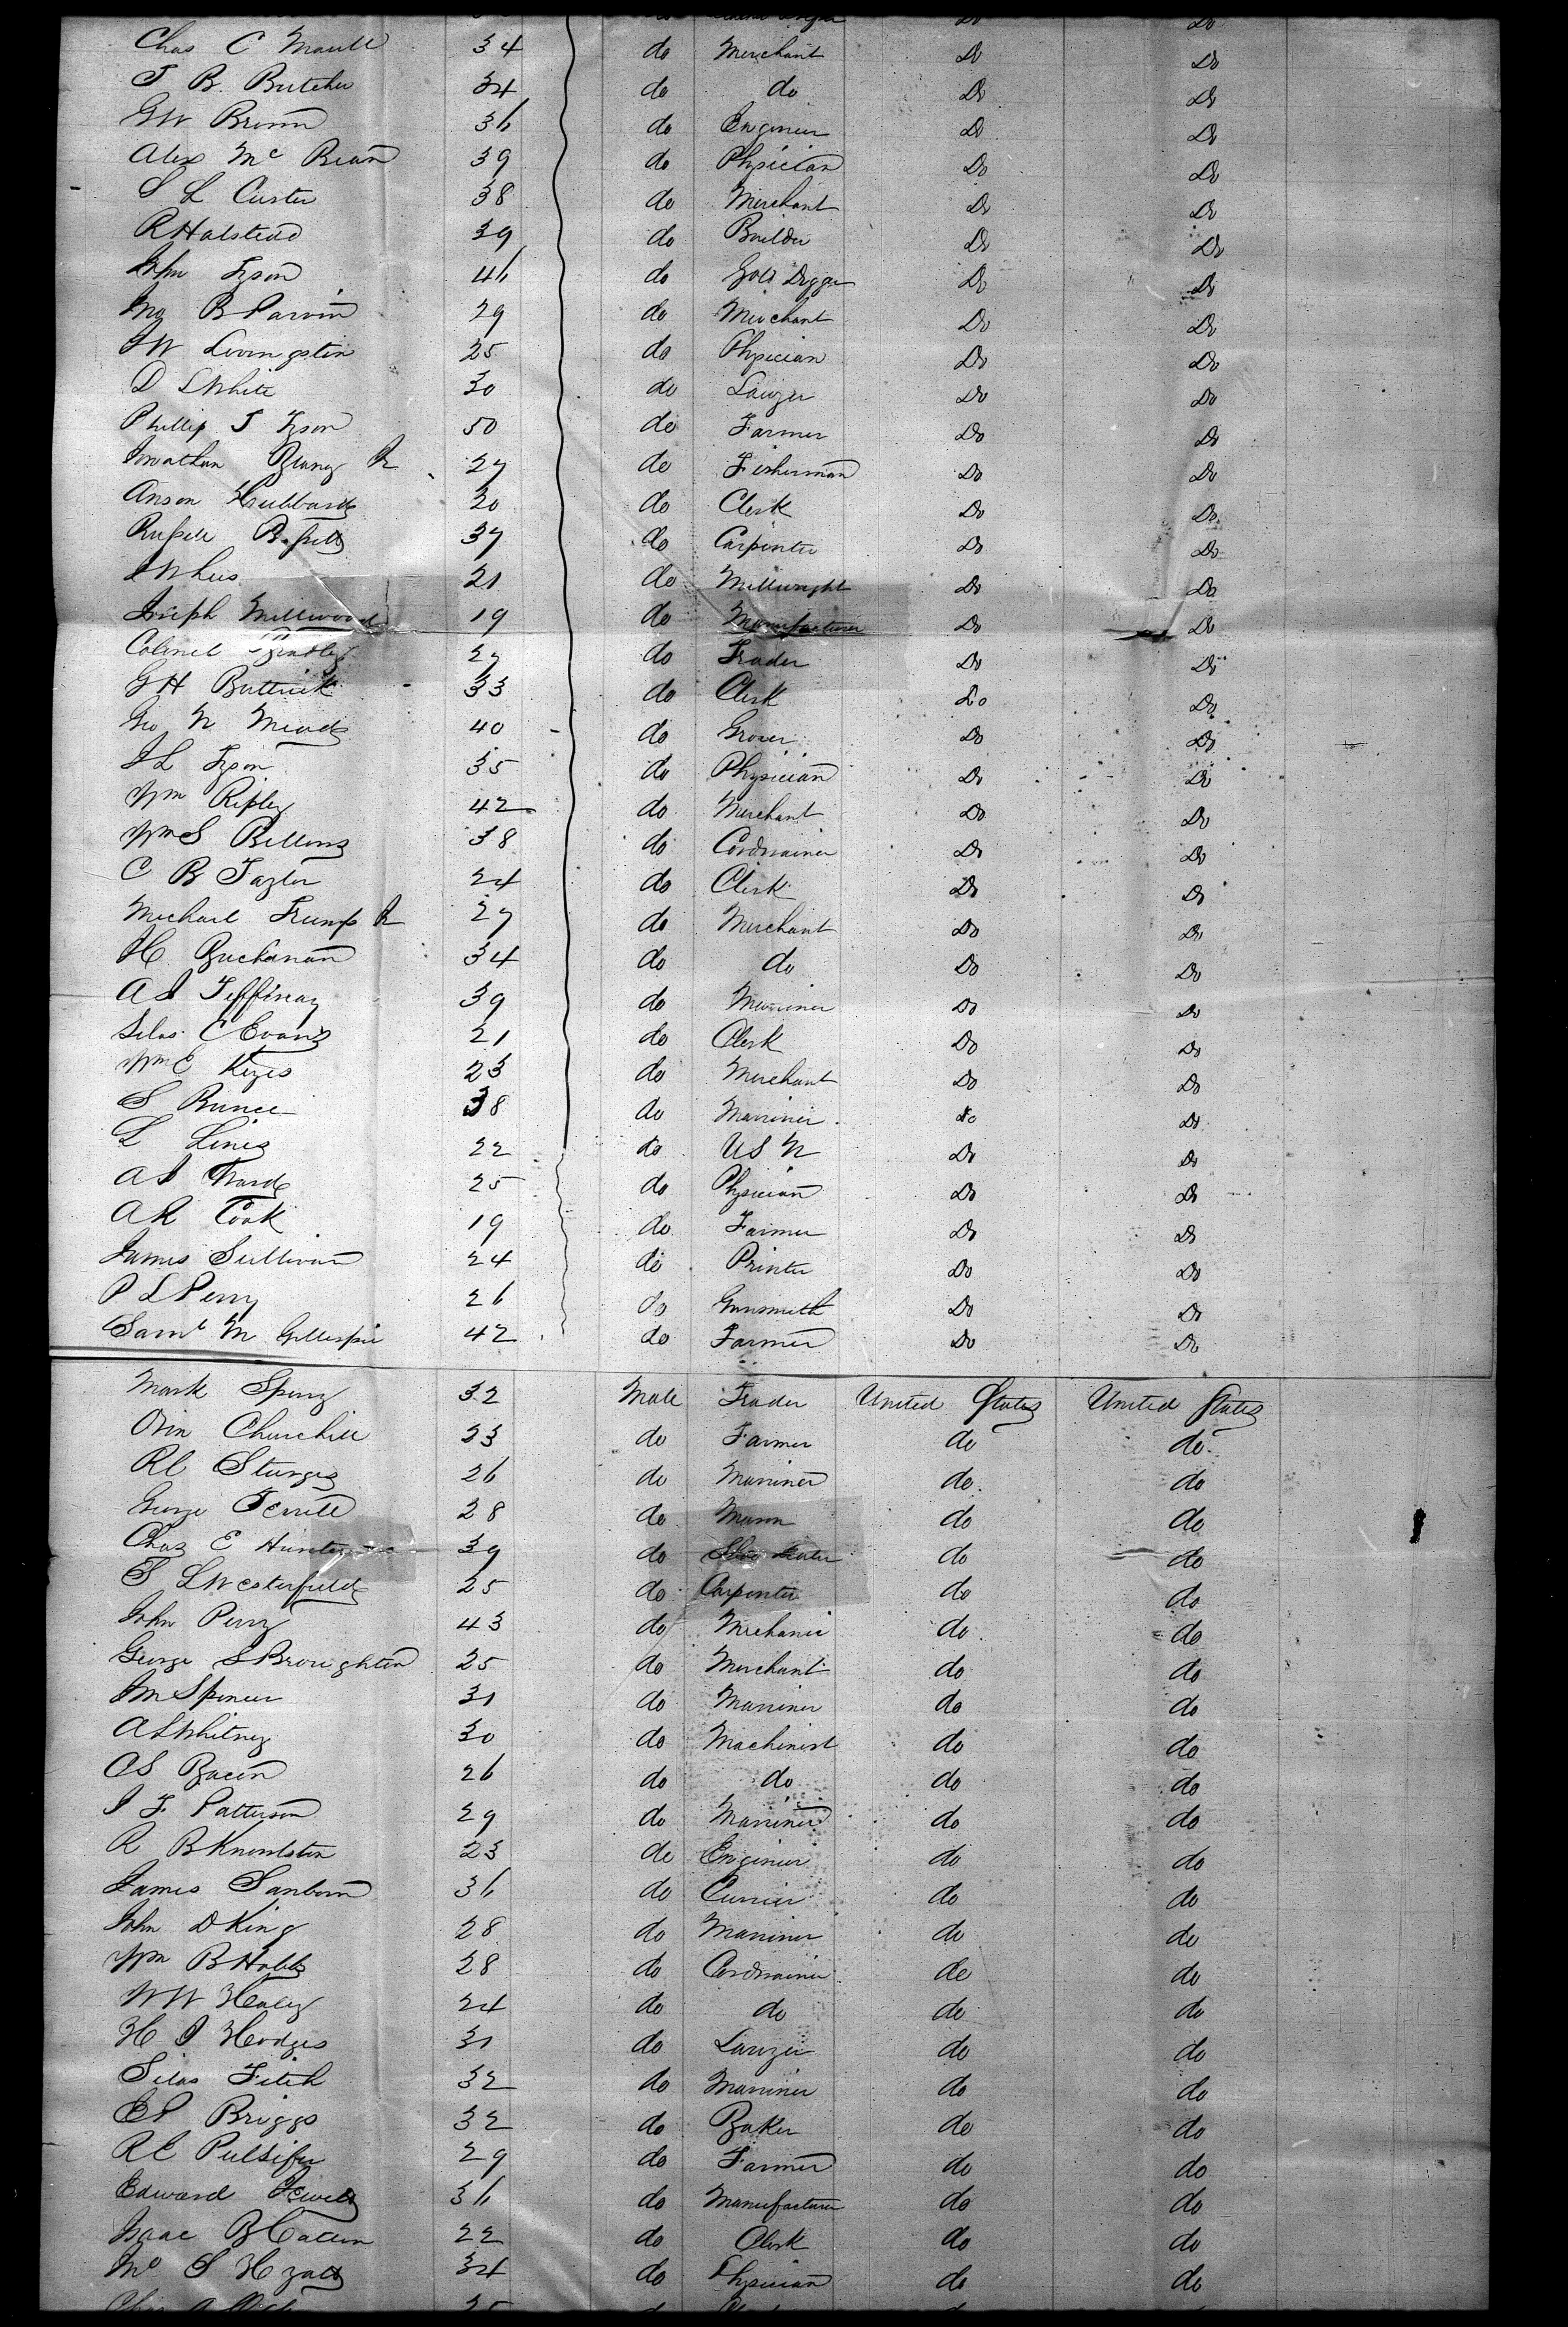 Chas C Maull 34 do Merchant Do Do
J B Butcher 34 do do Do Do
G W Brown 36 do Engineer Do Do
Alex Mc Bean 39 do Physician Do Do
S L Custer 38 do Merchant Do Do
R Halstead 39 do Builder Do Do
John Tyson 46 do Gold Digger Do Do
Jno B Parvin 29 do Merchant Do Do
J W Livingston 25 do Physician Do Do
D L White 30 do Lawyer Do Do
Phillip T Tyson 50 do Farmer Do Do
Jonathan Blaney Jr 27 do Fisherman Do Do
Anson Hubbard 20 do Clerk Do Do
Russell 37 do Carpenter Do Do
21 do Millwright Do Do
Joseph Millwood 19 do Manufacturer Do Do
Colonel 27 do Trader Do Do
G H Buttrick 33 do Clerk Do Do
Geo N Meads 40 do Grocer Do Do
J L Tyson 35 do Physician Do Do
Wm Ripley 42 do Merchant Do Do
Wm S Billings 38 do Cordwainer Do Do
C B Taylor 24 do Clerk Do Do
Michael Trump Jr 27 do Merchant Do Do
Buchanan 34 do do Do Do
39 do Marriner Do Do
Silas C Evans 21 do Clerk Do Do
Wm C Keyes 23 do Merchant Do Do
S Bunce 38 do Marriner do Do
L Lines 22 do U S N Do Do
A J Ward 25 do Physician Do Do
A R Cook 19 do Farmer Do Do
James Sullivan 24 do Printer Do Do
P L Perry 26 do Gunsmith Do Do
Saml M Gillespie 42 do Farmer Do Do
Mark Sperry 32 Male Trader United States United States
Orin Churchill 33 do Farmer do do
R C Sturges 26 do Marriner do do
George Terrill 28 do Mason do do
Chas E Hunter 39 do do do
S L Westerfield 25 do Carpenter do do
John Perry 43 do Mechanic do do
George S Broughton 25 do Merchant do do
J M Spencer 31 do Marriner do do
A L Whitney 30 do Machinist do do
C S Bacon 26 do do do do
J F Patterson 29 do Marriner do do
R B Knowlston 23 do Engineer do do
James Sanborn 36 do Currier do do
John D King 28 do Marriner do do
Wm B Hobbs 28 do Cordwainer do do
W W Haley 24 do do do do
H J Hodges 31 do Lawyer do do
Silas Fitch 32 do Marriner do do
Briggs 32 do Baker do do
R E Pulsifer 29 do Farmer do do
Edward Jewett 36 do Manufacturer do do
Isaac B Catlin 22 do Clerk do do
Hyatt 34 do Physician do do